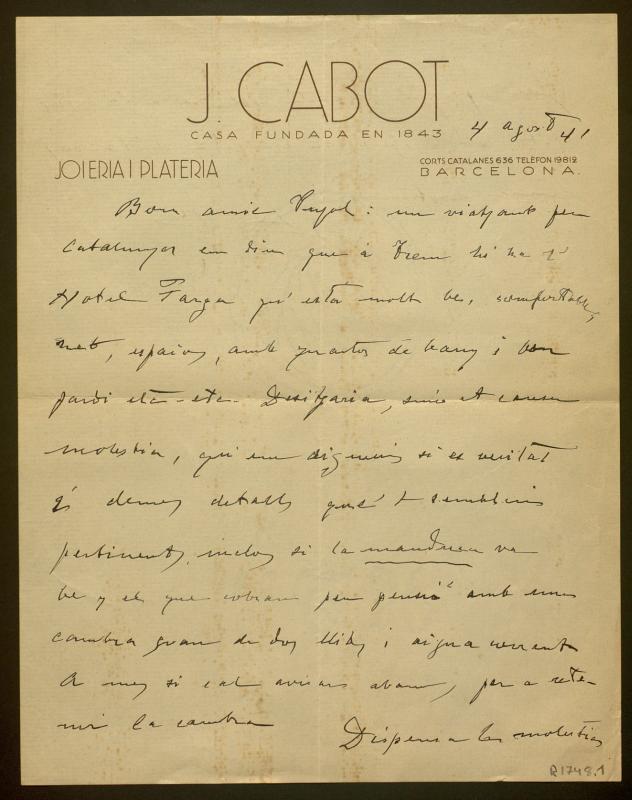 J. CABOT
CASA FUNDADA EN 1843
4 agost 41
JOIERIA I PLATERIA
CORTS CATALANES 636 TELÈFON 19812
BARCELONA.
Bon amic Pujol: un viatjant per
Catalunya em diu que à Tremp hi ha l'
Hotel Farga qu' està molt be, comfortable,
net, espaiós, amb quartos de bany i bon
jardi etc-etc. Desitjaria, sinó et causa
molestia, qu'em diguesis si es veritat
i demes detalls que't semblin
pertinents, inclos si la manduca va
be y el que cobran per pensió amb una
cambra gran de dos llits i aigua corrent
A mes si cal avisar abans, per a rete-
nir la cambra
Dispensa les molesties
R.1748.1